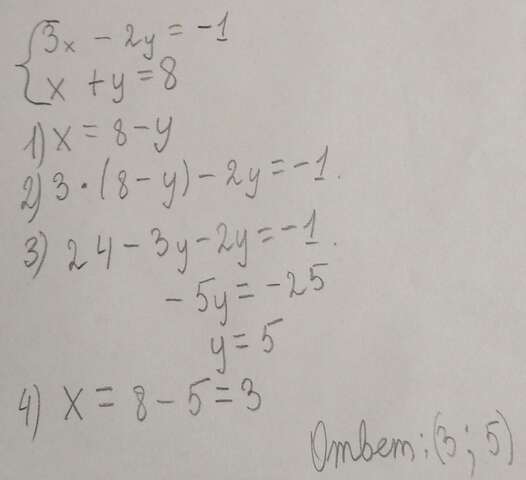 { 3x - 2y = -1
x + y = 8
1) x = 8 - y
2) 3 · (8 - y) - 2y = -1.
3) 24 - 3y - 2y = -1.
- 5y = -25
y = 5
4) x = 8 - 5 = 3
Ответ: (3; 5)